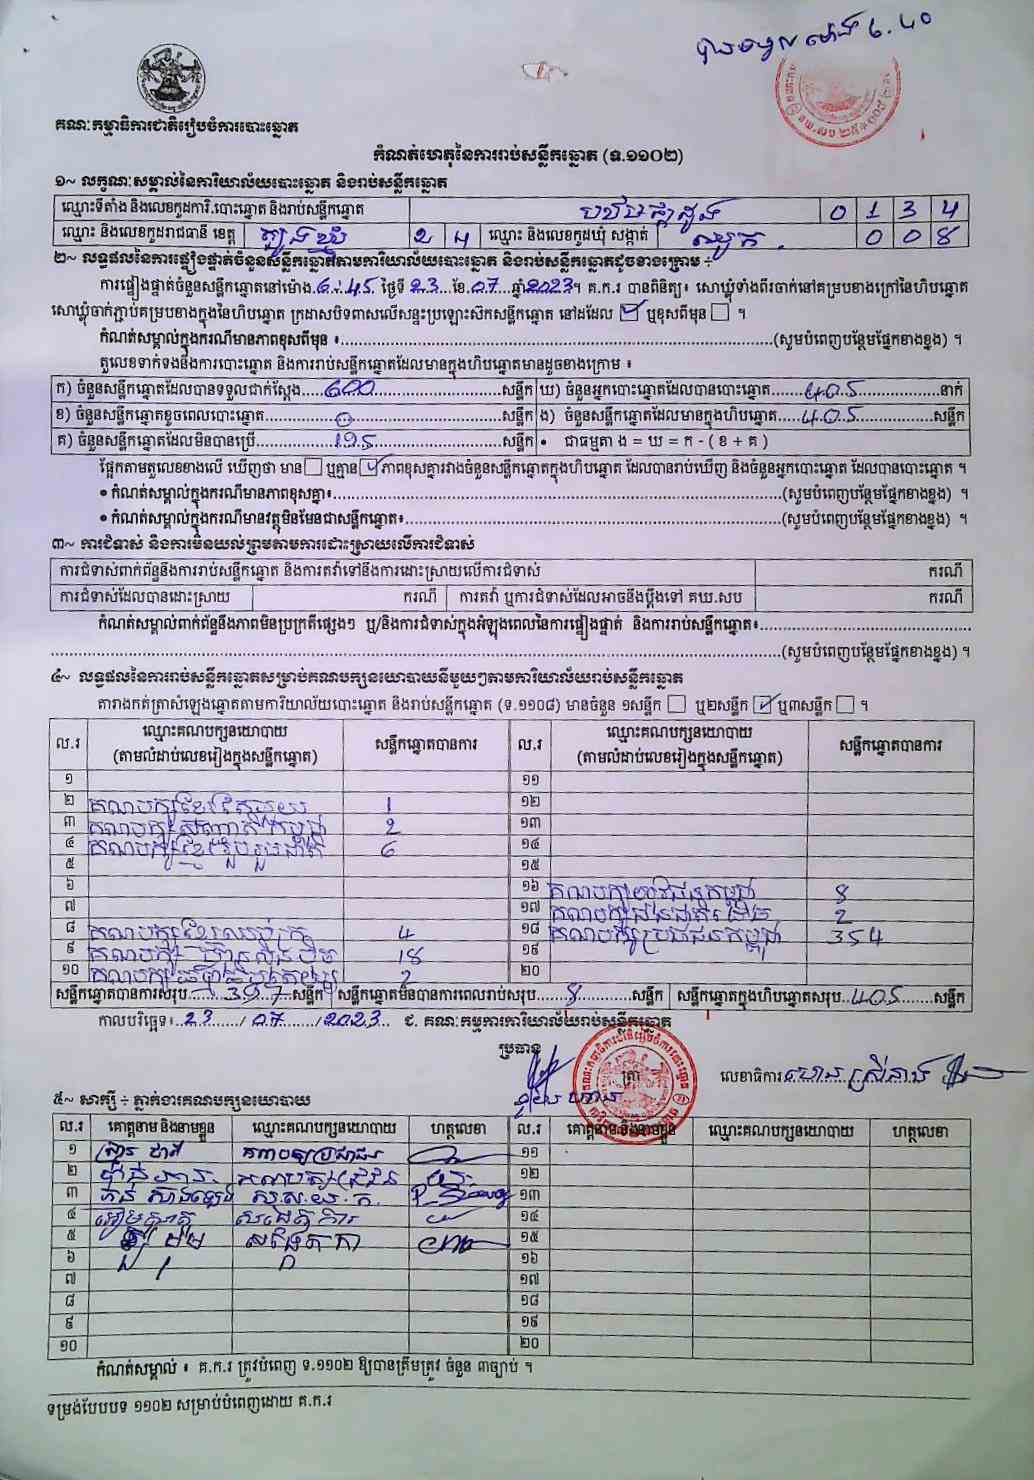 គណៈកម្មាធិការជាតិរៀបចំការបោះឆ្នោត
កំណត់ហេតុនៃការរាប់សន្លឹកឆ្នោត (ទ.១១០២)
១~ លក្ខណៈសម្គាល់នៃការិយាល័យបោះឆ្នោត និងរាប់សន្លឹកឆ្នោត
ឈ្មោះទីតាំង និងលេខកូដការិ.បោះឆ្នោត និងរាប់សន្លឹកឆ្នោត 0 1 3 4
ឈ្មោះ និងលេខកូដរាជធានី ខេត្ត ត្បូងឃ្មុំ 2 4 ឈ្មោះ និងលេខកូដឃុំ សង្កាត់ 0 0 8
២~ លទ្ធផលនៃការផ្ទៀងផ្ទាត់ចំនួនសន្លឹកឆ្នោតតាមការិយាល័យបោះឆ្នោត និងរាប់សន្លឹកឆ្នោតដូចខាងក្រោម ÷
ការផ្ទៀងផ្ទាត់ចំនួនសន្លឹកឆ្នោតនៅម៉ោង 6:45 ថ្ងៃទី 23 ខែ 07 ឆ្នាំ 2023។ គ.ក.រ បានពិនិត្យ៖ សោឃ្លុំទាំងពីរចាក់នៅគម្របខាងក្រៅនៃហិបឆ្នោត
សោឃ្លុំចាក់ភ្ជាប់គម្របខាងក្នុងនៃហិបឆ្នោត ក្រដាសបិទពាសលើសន្ទះប្រឡោះស៊កសន្លឹកឆ្នោត នៅដដែល ☑ ឬខុសពីមុន ☐ ។
កំណត់សម្គាល់ក្នុងករណីមានភាពខុសពីមុន ៖ (សូមបំពេញបន្ថែមផ្នែកខាងខ្នង) ។
តួលេខទាក់ទងនឹងការបោះឆ្នោត និងការរាប់សន្លឹកឆ្នោតដែលមានក្នុងហិបឆ្នោតមានដូចខាងក្រោម ៖
ក) ចំនួនសន្លឹកឆ្នោតដែលបានទទួលជាក់ស្តែង 600 សន្លឹក ឃ) ចំនួនអ្នកបោះឆ្នោតដែលបានបោះឆ្នោត 405 នាក់
ខ) ចំនួនសន្លឹកឆ្នោតខូចពេលបោះឆ្នោត 0 សន្លឹក ង) ចំនួនសន្លឹកឆ្នោតដែលមានក្នុងហិបឆ្នោត 405 សន្លឹក
គ) ចំនួនសន្លឹកឆ្នោតដែលមិនបានប្រើ 195 សន្លឹក • ជាធម្មតា ង = ឃ = ក - ( ខ + គ )
ផ្អែកតាមតួលេខខាងលើ ឃើញថា មាន ☐ ឬគ្មាន ☑ ភាពខុសគ្នារវាងចំនួនសន្លឹកឆ្នោតក្នុងហិបឆ្នោត ដែលបានរាប់ឃើញ និងចំនួនអ្នកបោះឆ្នោត ដែលបានបោះឆ្នោត ។
• កំណត់សម្គាល់ក្នុងករណីមានភាពខុសគ្នា៖ (សូមបំពេញបន្ថែមផ្នែកខាងខ្នង) ។
• កំណត់សម្គាល់ក្នុងករណីមានវត្ថុមិនមែនជាសន្លឹកឆ្នោត៖ (សូមបំពេញបន្ថែមផ្នែកខាងខ្នង) ។
៣~ ការជំទាស់ និងការមិនយល់ព្រមតាមការដោះស្រាយលើការជំទាស់
ការជំទាស់ពាក់ព័ន្ធនឹងការរាប់សន្លឹកឆ្នោត និងការតវ៉ាទៅនឹងការដោះស្រាយលើការជំទាស់ ករណី
ការជំទាស់ដែលបានដោះស្រាយ ករណី ការតវ៉ា ឬការជំទាស់ដែលអាចនឹងប្តឹងទៅ គឃ.សប ករណី
កំណត់សម្គាល់ពាក់ព័ន្ធនឹងភាពមិនប្រក្រតីផ្សេងៗ ឬ/និងការជំទាស់ក្នុងអំឡុងពេលនៃការផ្ទៀងផ្ទាត់ និងការរាប់សន្លឹកឆ្នោត៖
(សូមបំពេញបន្ថែមផ្នែកខាងខ្នង) ។
៤~ លទ្ធផលនៃការរាប់សន្លឹកឆ្នោតសម្រាប់គណបក្សនយោបាយនីមួយៗតាមការិយាល័យរាប់សន្លឹកឆ្នោត
តារាងកត់ត្រាសំឡេងឆ្នោតតាមការិយាល័យបោះឆ្នោត និងរាប់សន្លឹកឆ្នោត (ទ.១១០៨) មានចំនួន ១សន្លឹក ☐ ឬ២សន្លឹក ☑ ឬ៣សន្លឹក ☐ ។
ល.រ ឈ្មោះគណបក្សនយោបាយ (តាមលំដាប់លេខរៀងក្នុងសន្លឹកឆ្នោត) សន្លឹកឆ្នោតបានការ ល.រ ឈ្មោះគណបក្សនយោបាយ (តាមលំដាប់លេខរៀងក្នុងសន្លឹកឆ្នោត) សន្លឹកឆ្នោតបានការ
១ ១១
២ គណបក្សខ្មែរតែមួយ 1 ១២
៣ គណបក្ស 2 ១៣
៤ គណបក្សខ្មែររួបរួមជាតិ 6 ១៤
៥ ១៥
៦ ១៦ គណបក្សយុវជនកម្ពុជា 8
៧ ១៧ គណបក្ស 2
៨ គណបក្ស 4 ១៨ គណបក្សប្រជាជនកម្ពុជា 354
៩ គណបក្សហ៊្វុនស៊ិនប៉ិច 18 ១៩
១០ គណបក្ស 2 ២០
សន្លឹកឆ្នោតបានការសរុប 397 សន្លឹក សន្លឹកឆ្នោតមិនបានការពេលរាប់សរុប 8 សន្លឹក សន្លឹកឆ្នោតក្នុងហិបឆ្នោតសរុប 405 សន្លឹក
កាលបរិច្ឆេទ៖ 23 / 07 / 2023 ជ. គណៈកម្មការការិយាល័យរាប់សន្លឹកឆ្នោត
ប្រធាន
ត្រា
លេខាធិការ
៥~ សាក្សី ÷ ភ្នាក់ងារគណបក្សនយោបាយ
ល.រ គោត្តនាម និងនាមខ្លួន ឈ្មោះគណបក្សនយោបាយ ហត្ថលេខា ល.រ គោត្តនាម និងនាមខ្លួន ឈ្មោះគណបក្សនយោបាយ ហត្ថលេខា
១ ១១
២ ១២
៣ ស.ស.យ.ក. ១៣
៤ សង្កេតការ ១៤
៥ សង្កេតកា ១៥
៦ ១៦
៧ ១៧
៨ ១៨
៩ ១៩
១០ ២០
កំណត់សម្គាល់ ៖ គ.ក.រ ត្រូវបំពេញ ទ.១១០២ ឱ្យបានត្រឹមត្រូវ ចំនួន ៣ច្បាប់ ។
ទម្រង់បែបបទ ១១០២ សម្រាប់បំពេញដោយ គ.ក.រ